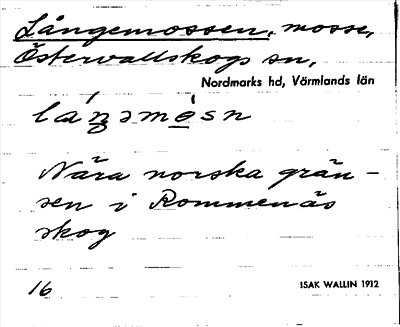 Långemossen, mosse,
Östervallskogs sn,
Nordmarks hd, Värmlands län
låŋəmòsn
Nära norska grän-
sen i Rommenäs
skog
16
ISAK WALLIN 1912